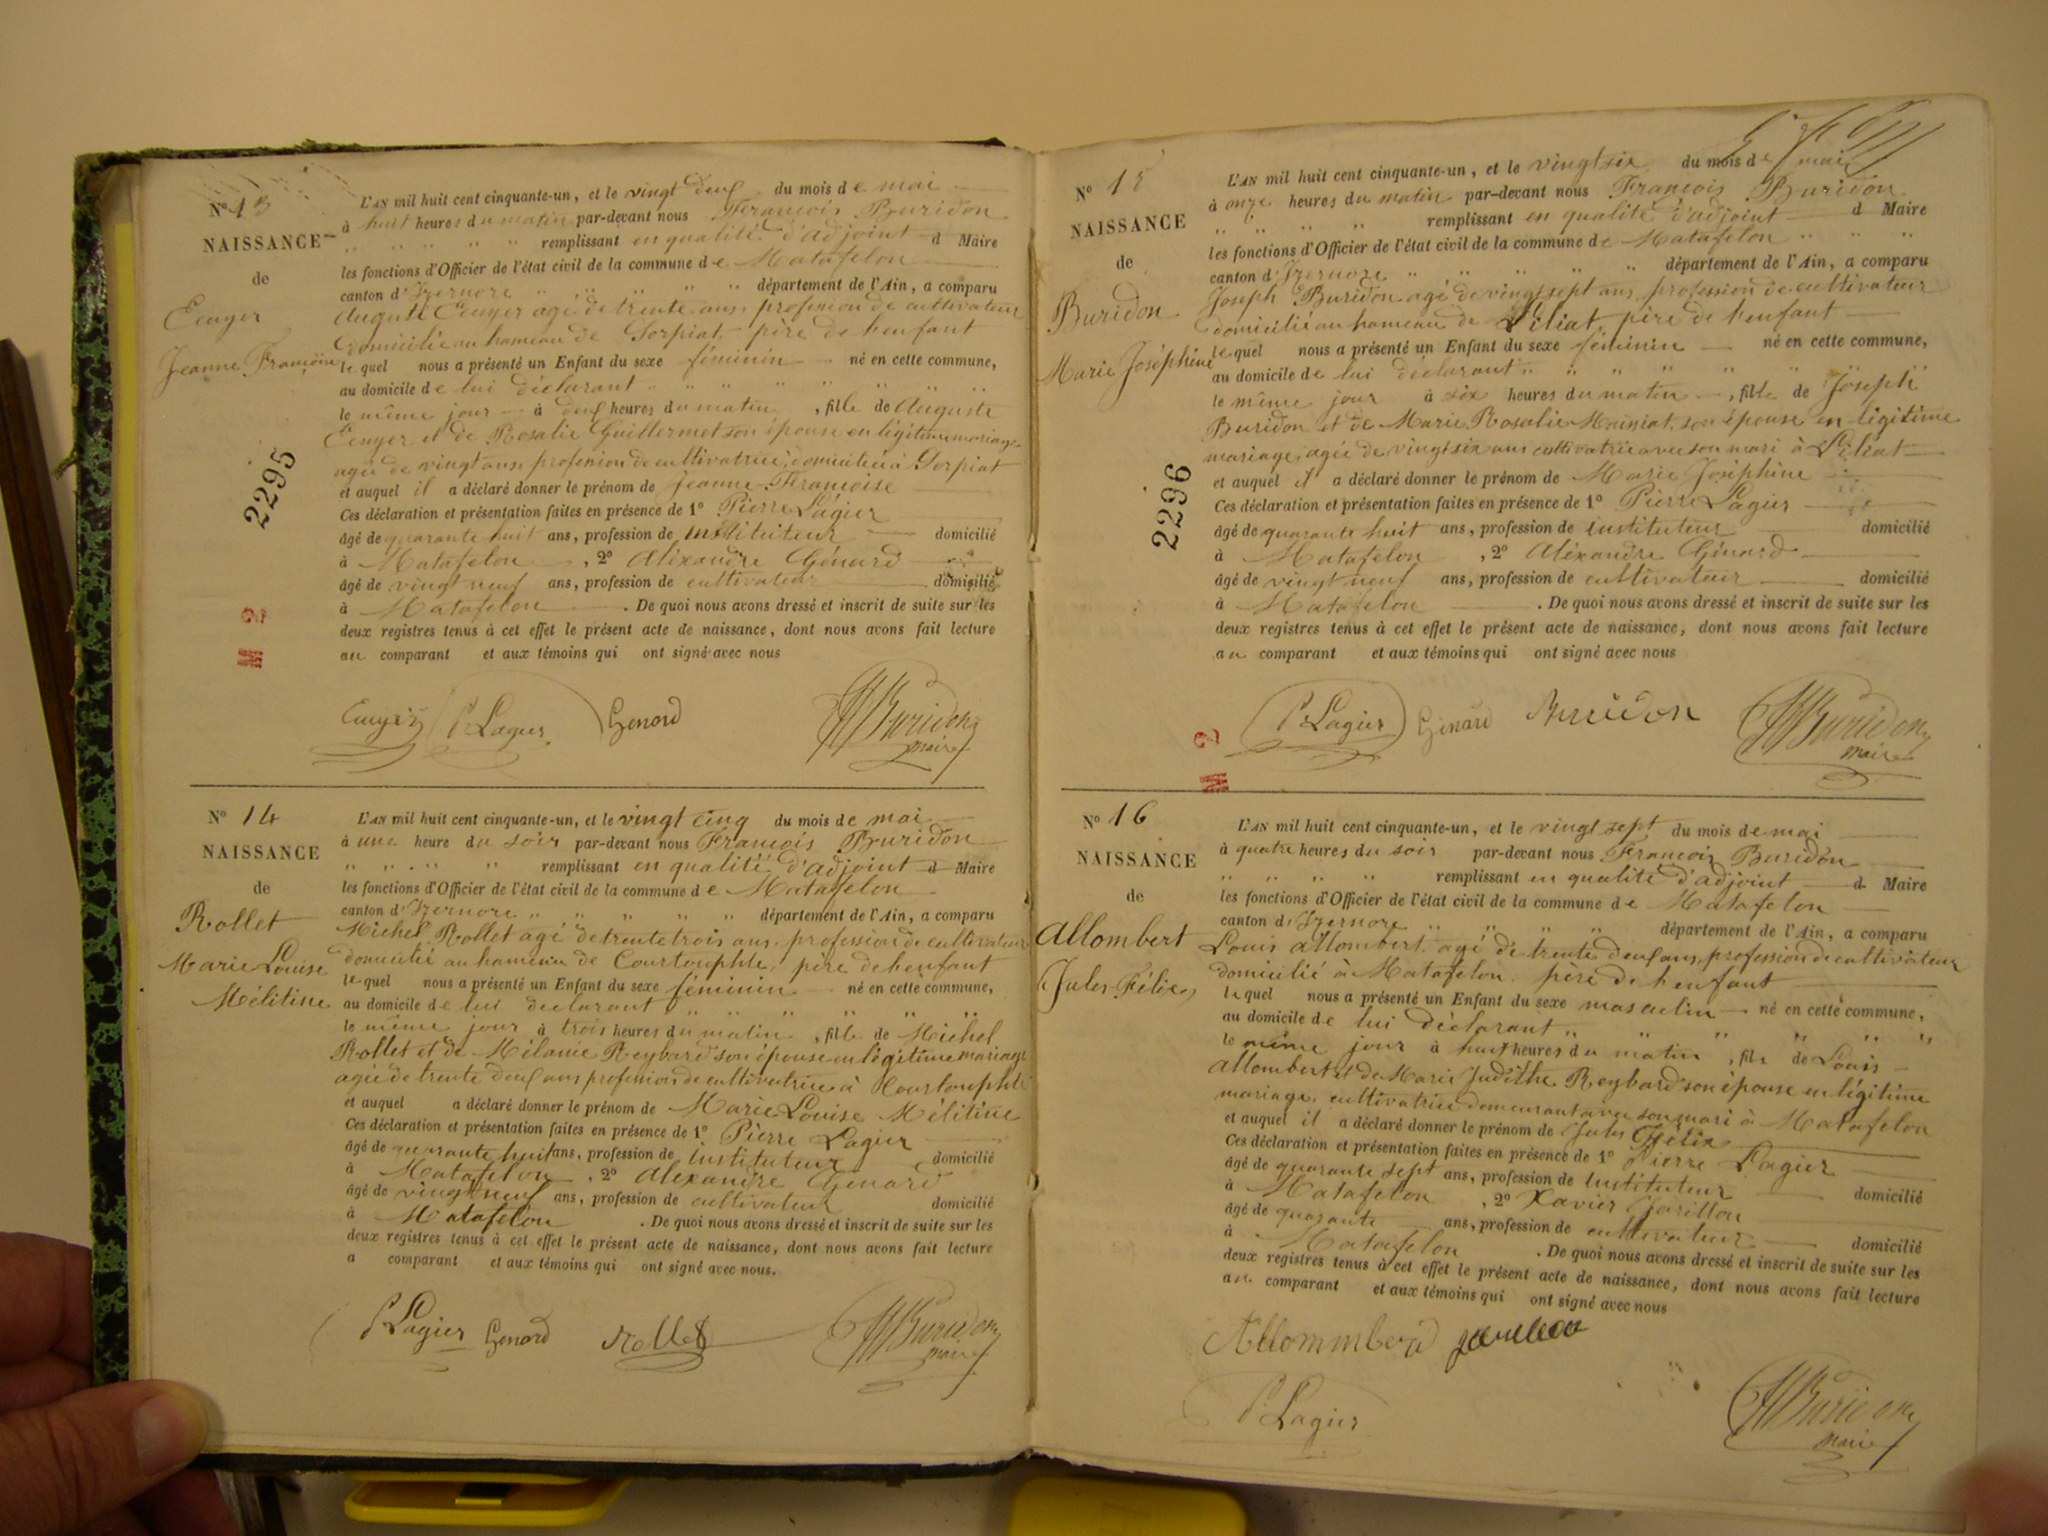 N° 13
NAISSANCE
de
Ecuyer
Jeanne Françoise
2295
M 2
L'AN mil huit cent cinquante-un, et le vingt deux du mois de mai
à huit heures du matin par-devant nous François Buridon
" " " " " remplissant en qualité d'adjoint d Maire
les fonctions d'Officier de l'état civil de la commune de Matafelon
canton d'Izernore " " " " " département de l'Ain, a comparu
Auguste Ecuyer agé de trente ans, profession de cultivateur
domicilié au hameau de Sorpiat père de l'enfant
lequel nous a présenté un Enfant du sexe féminin né en cette commune,
au domicile de lui déclarant " " " " " " "
le même jour à deux heures du matin, fille de Auguste
Ecuyer et de Rosalie Guillermet son épouse en légitime mariage
agée de vingt ans, profession de cultivatrice, domiciliée à Sorpiat
et auquel il a déclaré donner le prénom de Jeanne Françoise
Ces déclaration et présentation faites en présence de 1° Pierre Lagier
âgé de quarante huit ans, profession de instituteur domicilié
à Matafelon, 2° Aléxandre Génard
âgé de vingt neuf ans, profession de cultivateur domicilié
à Matafelon. De quoi nous avons dressé et inscrit de suite sur les
deux registres tenus à cet effet le présent acte de naissance, dont nous avons fait lecture
au comparant et aux témoins qui ont signé avec nous
Ecuyer P. Lagier Genard Buridon
maire
N° 14
NAISSANCE
de
Rollet
Marie Louise
Mélitine
L'AN mil huit cent cinquante-un, et le vingt cinq du mois de mai
à une heure du soir par-devant nous François Buridon
" " " " remplissant en qualité d'adjoint d Maire
les fonctions d'Officier de l'état civil de la commune de Matafelon
canton d'Izernore " " " " " département de l'Ain, a comparu
Michel Rollet agé de trente trois ans, profession de cultivateur
domicilié au hameau de Courtouphle, père de l'enfant
lequel nous a présenté un Enfant du sexe féminin né en cette commune,
au domicile de lui declarant " " " " " "
le même jour à trois heures du matin, fille de Michel
Rollet et de Mélanie Reybard son épouse en légitime mariage
agée de trente deux ans profession de cultivatrice à Courtouphle
et auquel a déclaré donner le prénom de Marie Louise Mélitine
Ces déclaration et présentation faites en présence de 1° Pierre Lagier
âgé de quarante huit ans, profession de instituteur domicilié
à Matafelon, 2° Aléxandre Génard
âgé de vingt neuf ans, profession de cultivateur domicilié
à Matafelon. De quoi nous avons dressé et inscrit de suite sur les
deux registres tenus à cet effet le présent acte de naissance, dont nous avons fait lecture
a comparant et aux témoins qui ont signé avec nous.
P. Lagier Genard Rollet Buridon
maire
N° 15
NAISSANCE
de
Buridon
Marie Joséphine
2296
M 2
L'AN mil huit cent cinquante-un, et le vingt six du mois de mai
à onze heures du matin par-devant nous François Buridon
" " " " remplissant en qualité d'adjoint d Maire
les fonctions d'Officier de l'état civil de la commune de Matafelon " " "
canton d'Izernore " " " " " département de l'Ain, a comparu
Joseph Buridon agé de vingt sept ans, profession de cultivateur
domicilié au hameau de Léliat, père de l'enfant
lequel nous a présenté un Enfant du sexe féminin né en cette commune,
au domicile de lui déclarant " " " " " "
le même jour à six heures du matin, fille de Joseph
Buridon et de Marie Rosalie son épouse en légitime
mariage, agée de vingt six ans cultivatrice avec son mari à Léliat
et auquel il a déclaré donner le prénom de Marie Joséphine
Ces déclaration et présentation faites en présence de 1° Pierre Lagier
âgé de quarante huit ans, profession de instituteur domicilié
à Matafelon, 2° Aléxandre Génard
âgé de vingt neuf ans, profession de cultivateur domicilié
à Matafelon. De quoi nous avons dressé et inscrit de suite sur les
deux registres tenus à cet effet le présent acte de naissance, dont nous avons fait lecture
au comparant et aux témoins qui ont signé avec nous
P. Lagier Génard Buridon Buridon
maire
N° 16
NAISSANCE
de
Allombert
Jules Félix
L'AN mil huit cent cinquante-un, et le vingt sept du mois de mai
à quatre heures du soir par-devant nous François Buridon
" " " " remplissant en qualité d'adjoint d Maire
les fonctions d'Officier de l'état civil de la commune de Matafelon
canton d'Izernore " " " " département de l'Ain, a comparu
Louis Allombert agé de trente deux ans, profession de cultivateur
domicilié à Matafelon père de l'enfant
lequel nous a présenté un Enfant du sexe masculin né en cette commune,
au domicile de lui déclarant " " " " "
le même jour à huit heures du matin, fils de Louis
Allombert et de Marie Judithe Reybard son épouse en légitime
mariage, cultivatrice demeurant avec son mari à Matafelon
et auquel il a déclaré donner le prénom de Jules Félix
Ces déclaration et présentation faites en présence de 1° Pierre Lagier
âgé de quarante sept ans, profession de instituteur domicilié
à Matafelon, 2° Xavier Jarillon
âgé de quarante ans, profession de cultivateur domicilié
à Matafelon. De quoi nous avons dressé et inscrit de suite sur les
deux registres tenus à cet effet le présent acte de naissance, dont nous avons fait lecture
au comparant et aux témoins qui ont signé avec nous
P. Lagier Buridon
maire